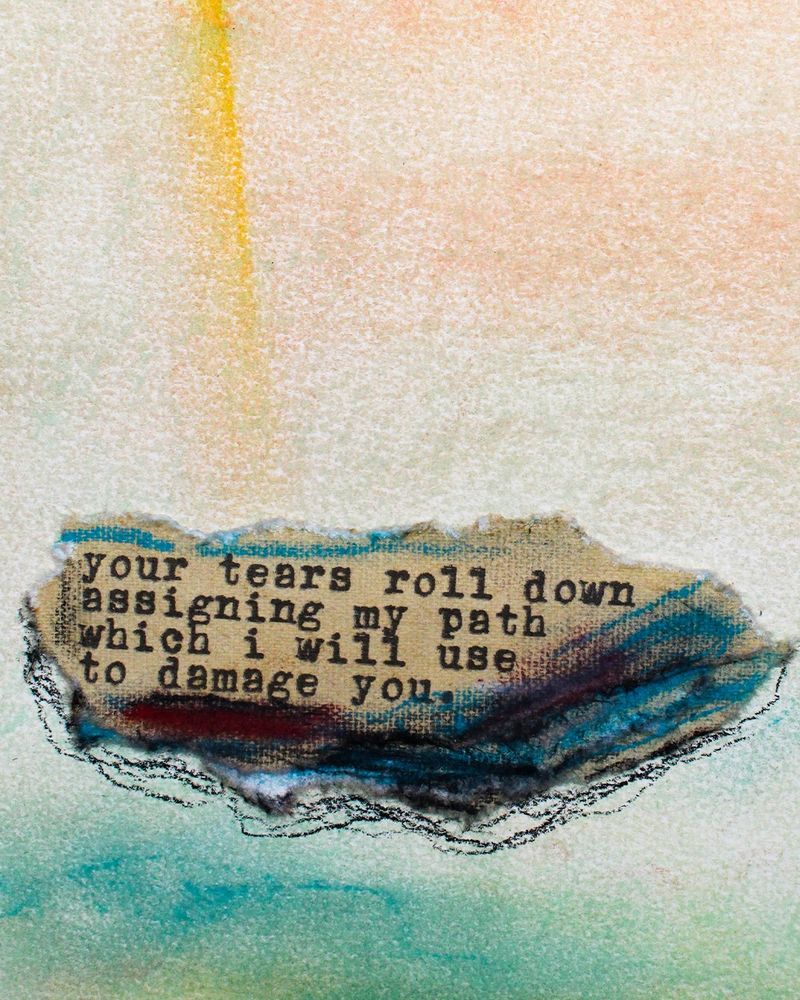 your tears roll down
assigning my path
which i will use
to damage you.